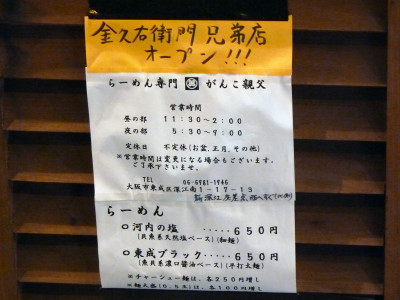 金久右衛門 兄弟店
オープン!!!
らーめん専門 がんこ親父
営業時間
昼の部 11:30~2:00
夜の部 5:30~9:00
定休日 不定休(お盆,正月,その他)
※営業時間は変更になる場合もございます。
ご了承下さいませ。
TEL 06-6981-1946
大阪市東成区深江南1-17-13
らーめん
○河内の塩 ・・・・・650円
(貝魚系天然塩ベース)(細麺)
○東成ブラック・・・・650円
(魚貝系濃口醤油ベース)(平打太麺)
※チャーシュー麺は、各250円増し